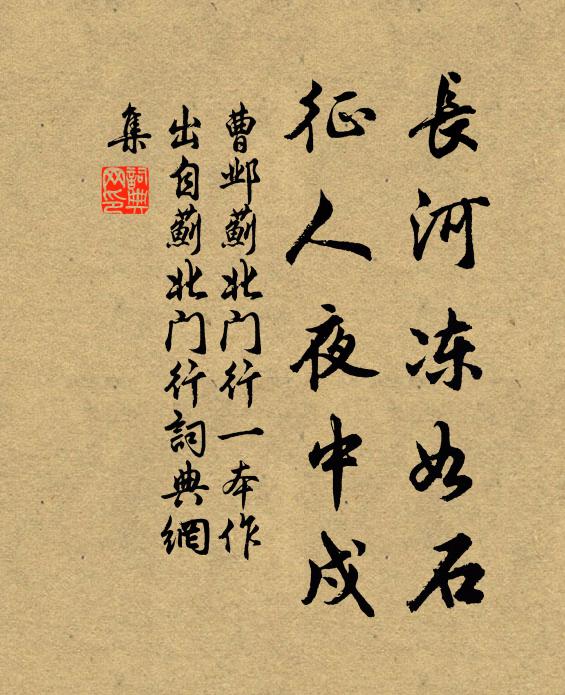 長河冻如石
征人夜中戍
曹邺薊北门行一本作
出自薊北门行詞典網
集
詞典网印